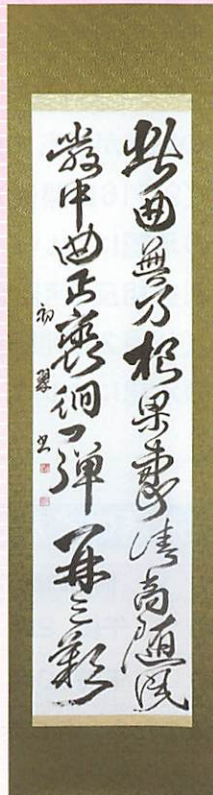 此曲無乃杞梁妻清商隨風
發中曲正裵徊一弾再三歎
初翠書